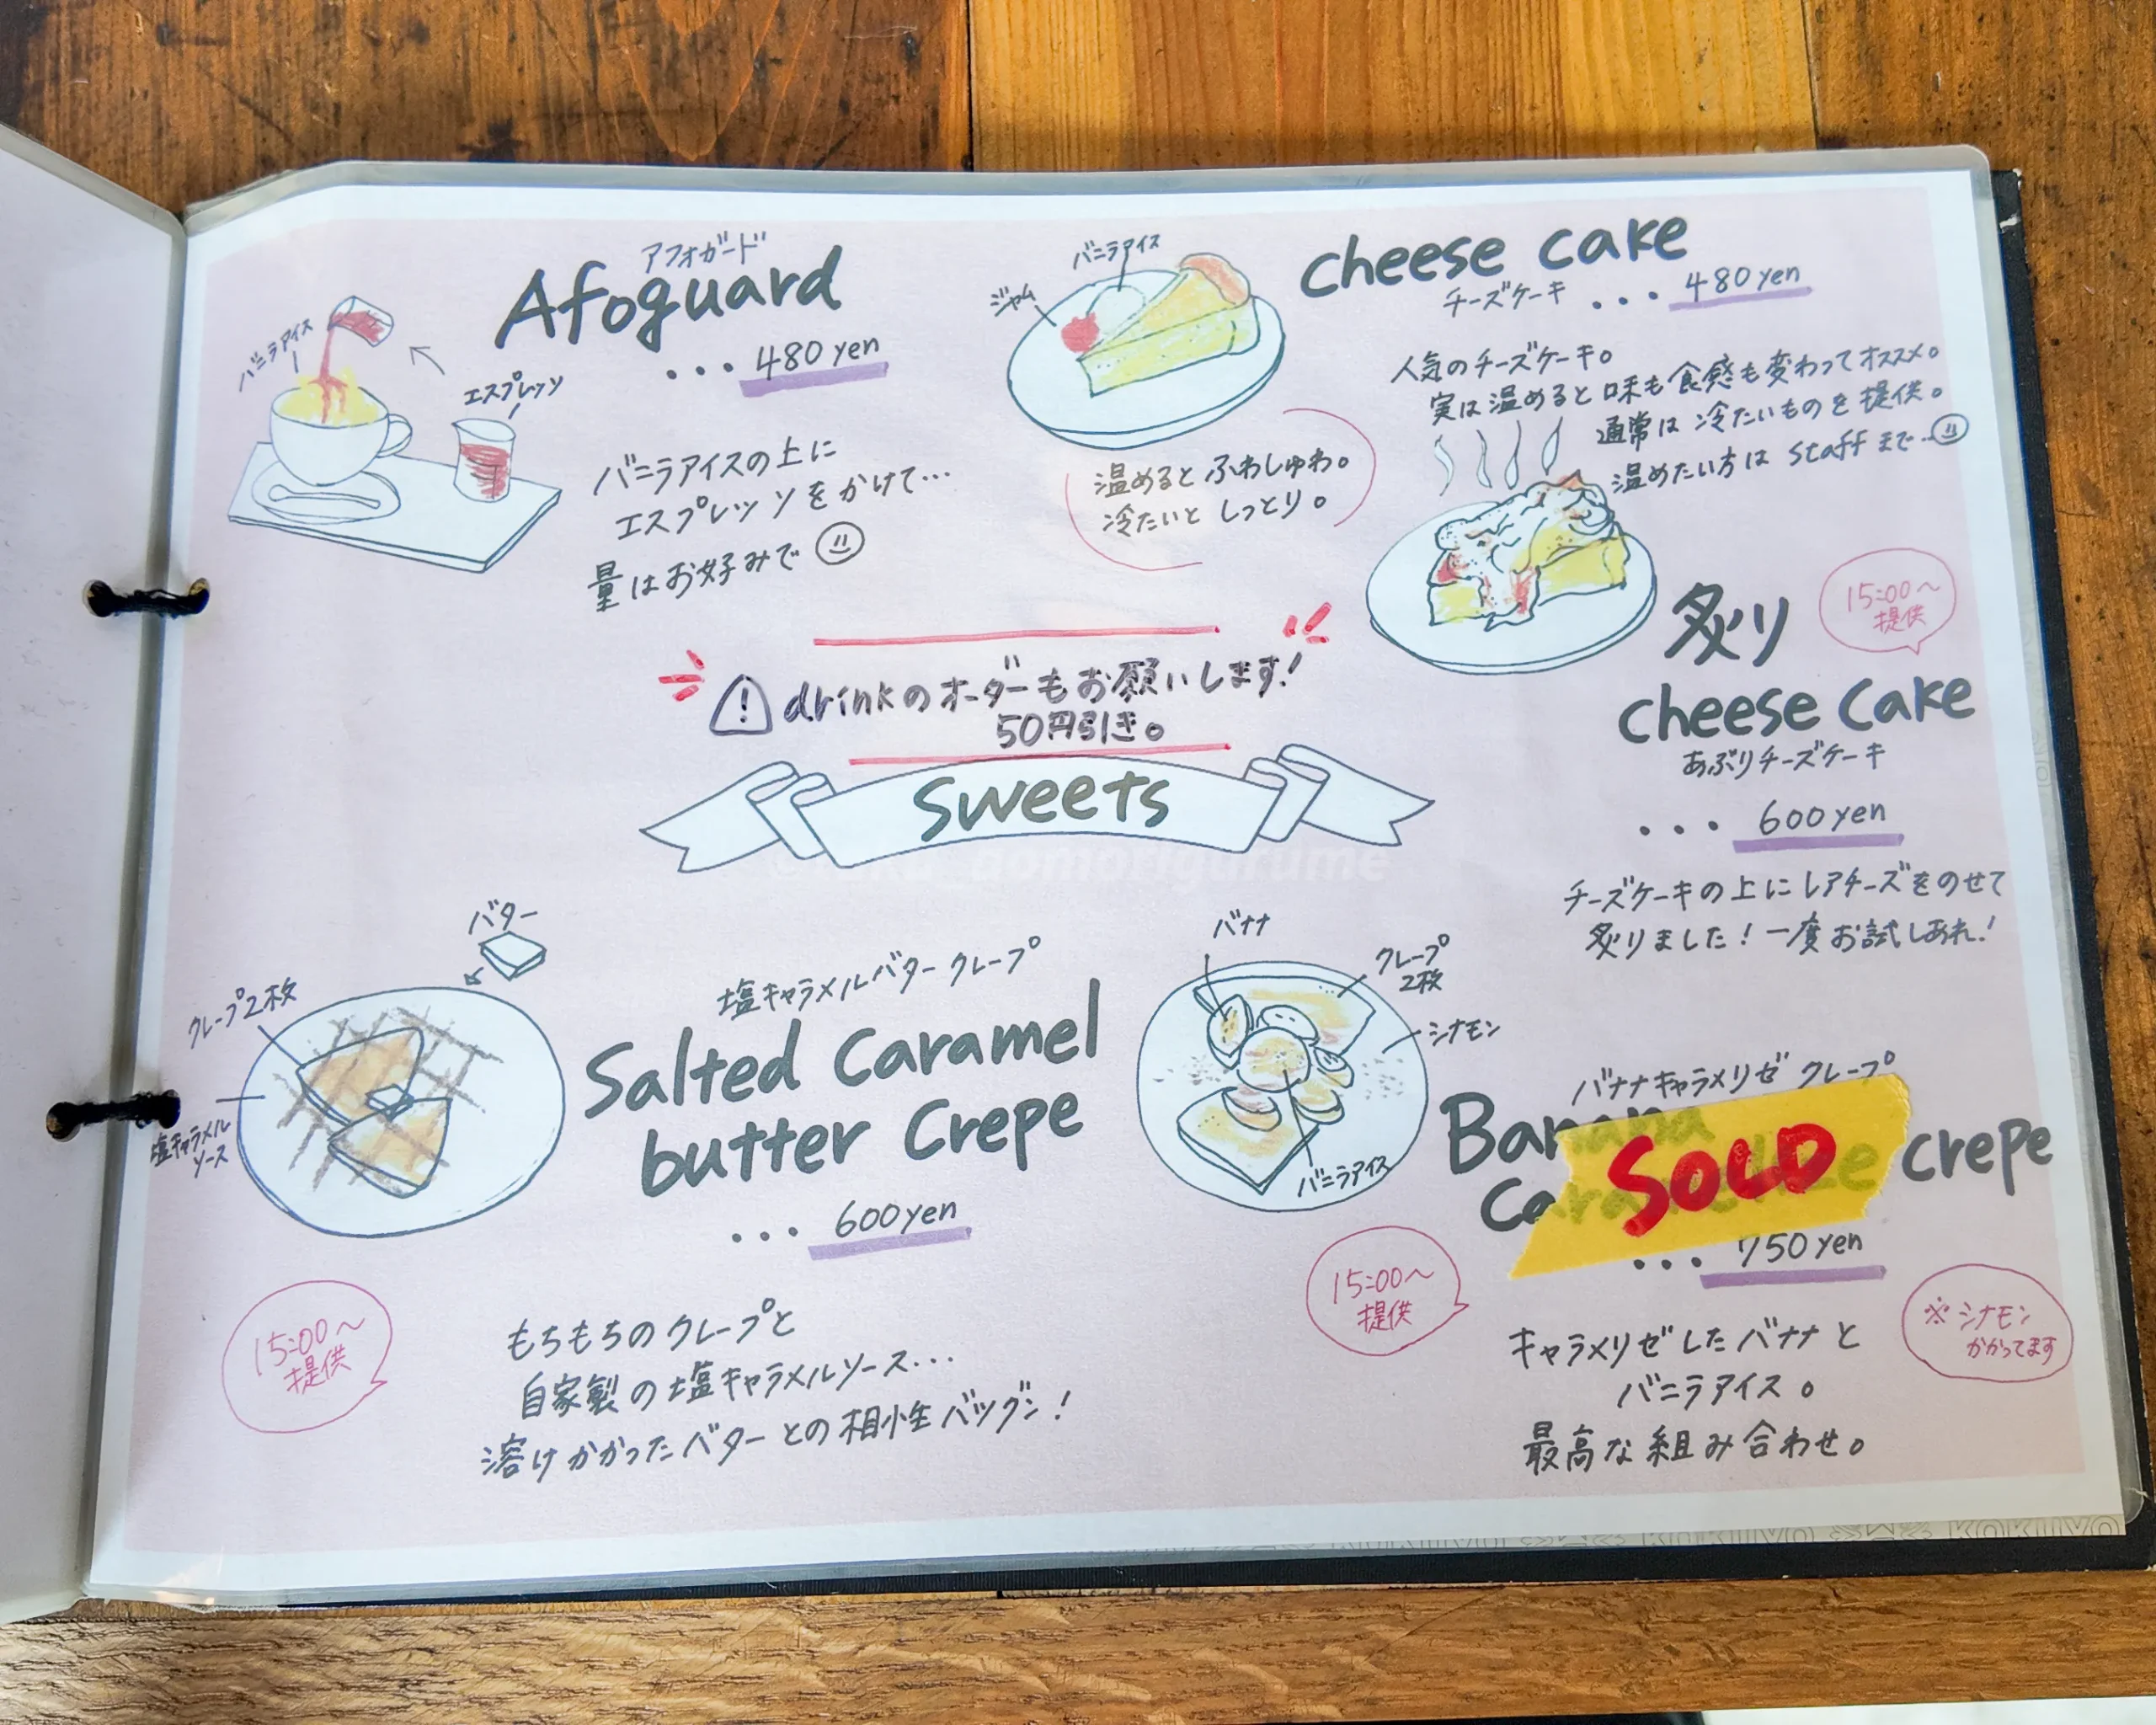 アフォガード
Afoguard
... 480 yen
バニラアイス
エスプレッソ
バニラアイスの上に
エスプレッソをかけて...
量はお好みで
バニラアイス
ジャム
cheese cake
チーズケーキ ... 480 yen
人気のチーズケーキ。
実は温めると味も食感も変わってオススメ。
通常は冷たいものを提供。
温めたい方は staff まで...
温めると ふわしゅわ。
冷たいと しっとり。
15:00～
提供
炙り
cheese cake
あぶりチーズケーキ
... 600 yen
チーズケーキの上にレアチーズをのせて
炙りました！一度お試しあれ！
! drinkのオーダーもお願いします！
50円引き。
Sweets
gomorigurume
バター
クレープ2枚
塩キャラメル
ソース
塩キャラメルバタークレープ
Salted Caramel
butter Crepe
... 600 yen
15:00～
提供
もちもちのクレープと
自家製の塩キャラメルソース...
溶けかかったバターとの相性バツグン！
バナナ
クレープ
2枚
シナモン
バニラアイス
バナナキャラメリゼ クレープ
Banana
Caramelize crepe
SOLD
... 750 yen
15:00～
提供
※シナモン
かかってます
キャラメリゼしたバナナと
バニラアイス。
最高な組み合わせ。
KOKUYO